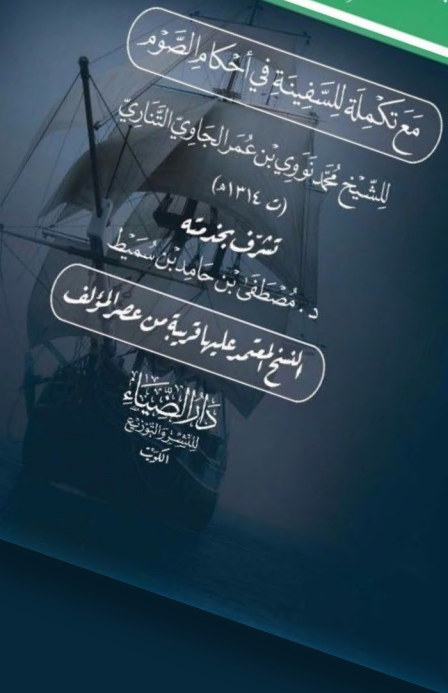 مَعَ تَكْمِلَة لِلسَّفِينَةِ فِي أَحْكَامِ الصَّوْم
لِلشَّيْخ مُحَمَّد نَوَوِي بْن عُمَر الجَاوِيّ التَّنَارِيّ
(ت ١٣١٤هـ)
تشرّف بخدمته
د. مُصْطَفَى بْن حَامِد بْن سُمَيْط
النسخ المعتمد عليها قريبة من عصر المؤلف
دَارُ الضِّيَاء
لِلنَّشْرِ وَالتَّوْزِيْع
الكويت